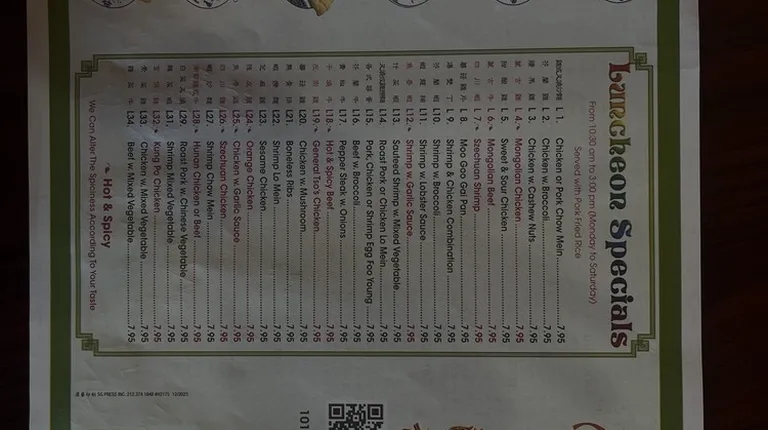 Luncheon Specials
From 10:30 am to 3:00 pm (Monday to Saturday)
Served with Pork Fried Rice
L 1. Chicken or Pork Chow Mein 7.95
芥蘭雞 L 2. Chicken w. Broccoli 7.95
腰果雞 L 3. Chicken w. Cashew Nuts 7.95
蒙古雞 L 4. Mongolian Chicken 7.95
甜酸雞 L 5. Sweet & Sour Chicken 7.95
蒙古牛 L 6. Mongolian Beef 7.95
四川蝦 L 7. Szechuan Shrimp 7.95
蘑菇雞片 L 8. Moo Goo Gai Pan 7.95
L 9. Shrimp & Chicken Combination 7.95
芥蘭蝦 L10. Shrimp w. Broccoli 7.95
蝦龍糊 L11. Shrimp w. Lobster Sauce 7.95
魚香蝦 L12. Shrimp w. Garlic Sauce 7.95
什菜蝦 L13. Sauteed Shrimp w. Mixed Vegetable 7.95
L14. Roast Pork or Chicken Lo Mein 7.95
各式蓉蛋 L15. Pork, Chicken or Shrimp Egg Foo Young 7.95
芥蘭牛 L16. Beef w. Broccoli 7.95
青椒牛 L17. Pepper Steak w. Onions 7.95
干燒牛 L18. Hot & Spicy Beef 7.95
左宗雞 L19. General Tso's Chicken 7.95
蘑菇雞 L20. Chicken w. Mushroom 7.95
無骨排 L21. Boneless Ribs 7.95
蝦撈麵 L22. Shrimp Lo Mein 7.95
芝麻雞 L23. Sesame Chicken 7.95
陳皮雞 L24. Orange Chicken 7.95
魚香雞 L25. Chicken w. Garlic Sauce 7.95
四川雞 L26. Szechuan Chicken 7.95
蝦炒麵 L27. Shrimp Chow Mein 7.95
L28. Hunan Chicken or Beef 7.95
白菜叉燒 L29. Roast Pork w. Chinese Vegetable 7.95
雜菜蝦 L31. Shrimp Mixed Vegetable 7.95
宮保雞 L32. Kung Po Chicken 7.95
雜菜雞 L33. Chicken w. Mixed Vegetable 7.95
雜菜牛 L34. Beef w. Mixed Vegetable 7.95
Hot & Spicy
We Can Alter The Spiciness According To Your Taste
SG PRESS INC.
12/2023
101